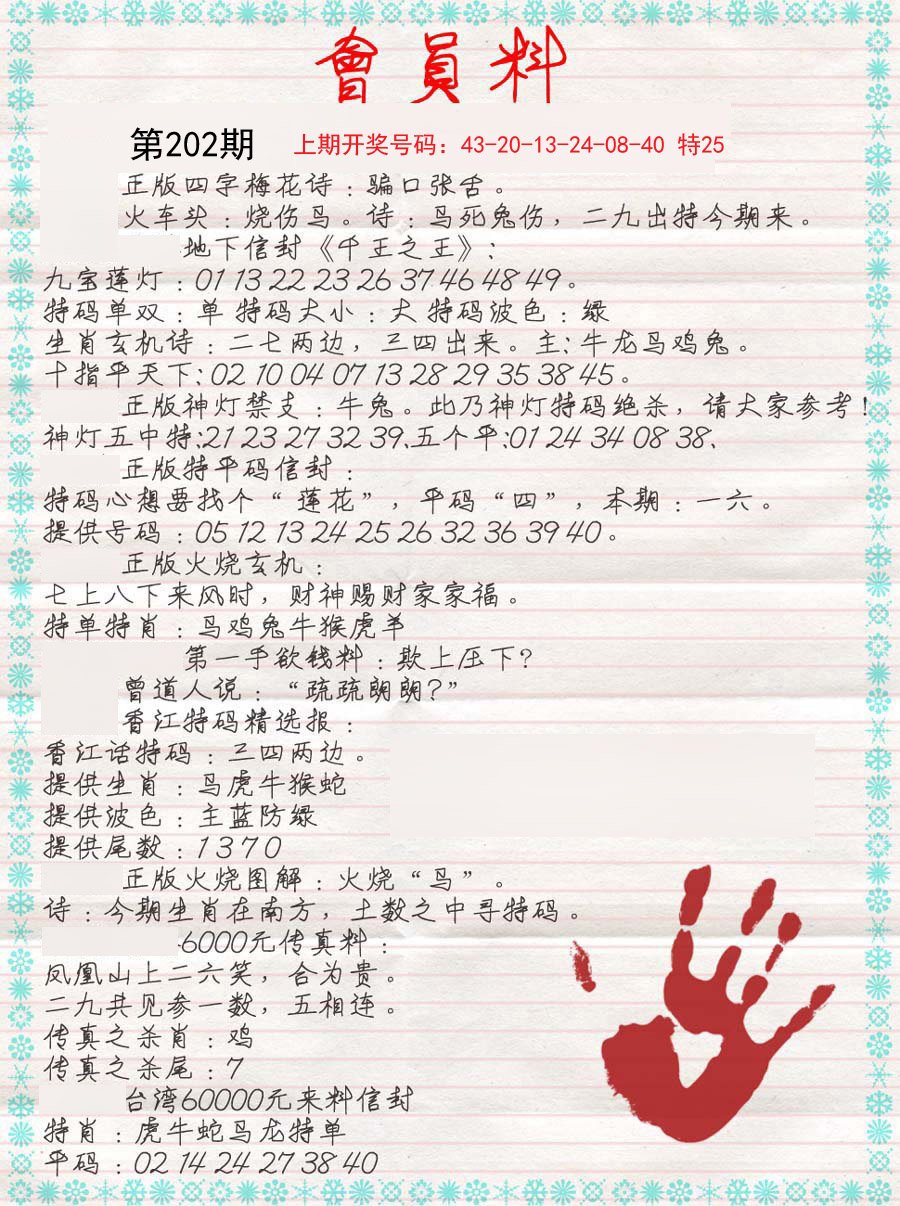 會員料
第202期 上期开奖号码：43-20-13-24-08-40 特25
正版四字梅花诗：骗口张舌。
火车头：烧伤鸟。诗：鸟死兔伤，二九出特今期来。
地下信封《千王之王》:
九宝莲灯：01 13 22 23 26 37 46 48 49。
特码单双：单 特码大小：大 特码波色：绿
生肖玄机诗：二七两边，三四出来。主: 牛龙鸟鸡兔。
十指平天下: 02 10 04 07 13 28 29 35 38 45。
正版神灯禁支：牛兔。此乃神灯特码绝杀，请大家参考！
神灯五中特:21 23 27 32 39.五个平:01 24 34 08 38.
正版特平码信封：
特码心想要找个“莲花”，平码“四”，本期：一六。
提供号码：05 12 13 24 25 26 32 36 39 40。
正版火烧玄机：
七上八下来风时，财神赐财家家福。
特单特肖：鸟鸡兔牛猴虎羊
第一手欲钱料：欺上压下？
曾道人说：“疏疏朗朗？”
香江特码精选报：
香江话特码：三四两边。
提供生肖：鸟虎牛猴蛇
提供波色：主蓝防绿
提供尾数：1 3 7 0
正版火烧图解：火烧“鸟”。
诗：今期生肖在南方，土数之中寻特码。
6000元传真料：
凤凰山上二六笑，合为贵。
二九共见参一数，五相连。
传真之杀肖：鸡
传真之杀尾：7
台湾60000元来料信封
特肖：虎牛蛇鸟龙特单
平码：02 14 24 27 38 40